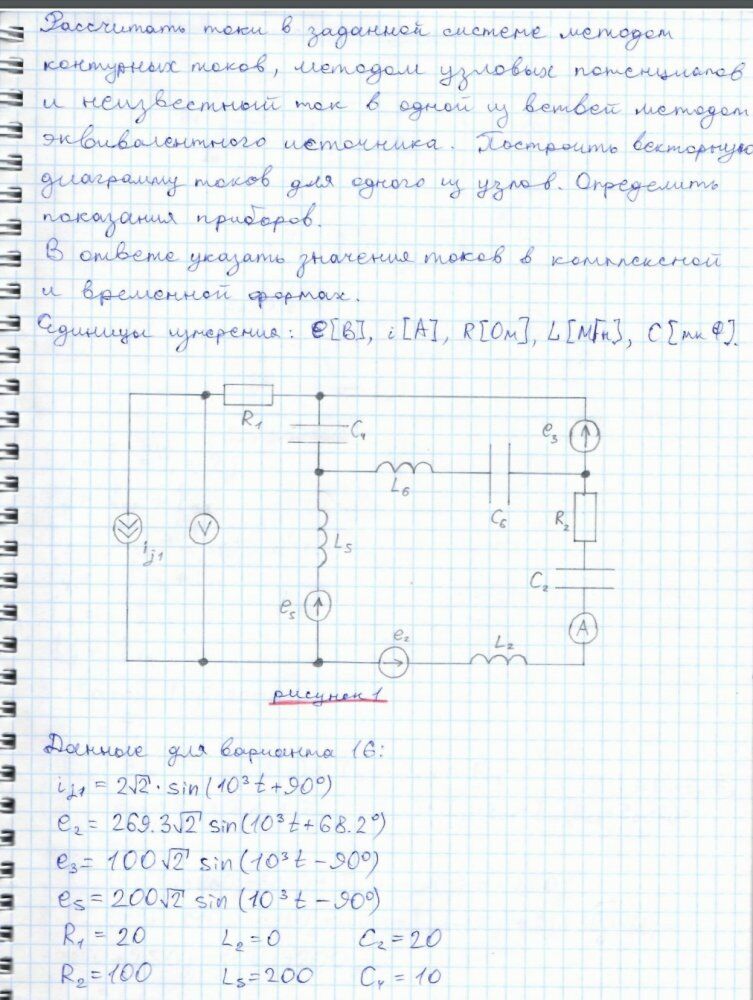 Рассчитать токи в заданной системе методом
контурных токов, методом узловых потенциалов
и неизвестный ток в одной из ветвей методом
эквивалентного источника. Построить векторную
диаграмму токов для одного из узлов. Определить
показания приборов.
В ответе указать значения токов в комплексной
и временной формах.
Единицы измерения: e[В], i[A], R[Ом], L[МГн], C[мкФ].
R1
C4
e3
L6
C6
R2
ij1
V
L5
C2
e5
A
e2
L2
рисунок 1
Данные для варианта 16:
ij1 = 2√2 · sin(10³t+90°)
e2 = 269.3√2 sin(10³t+68.2°)
e3 = 100√2 sin(10³t-90°)
e5 = 200√2 sin(10³t-90°)
R1 = 20 L2 = 0 C2 = 20
R2 = 100 L5 = 200 C4 = 10